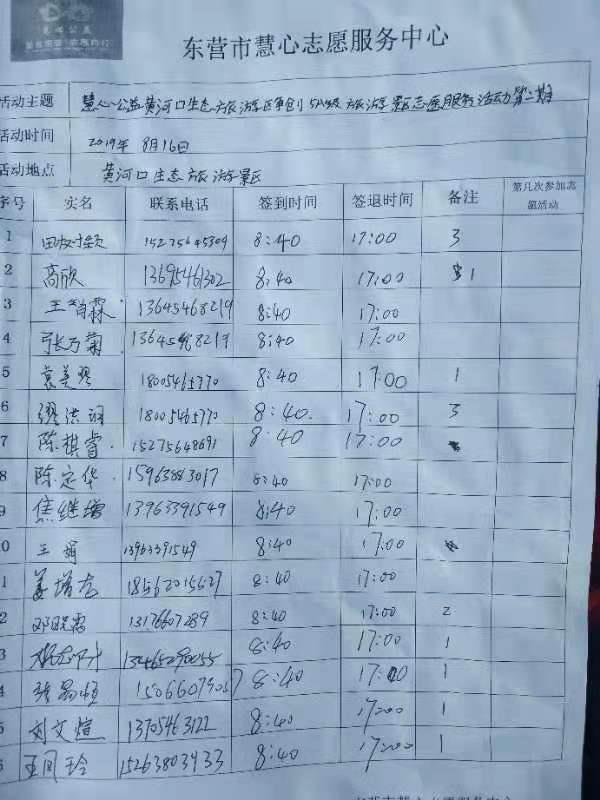 东营市慧心志愿服务中心
活动主题 慧心公益黄河口生态旅游区争创5A级旅游景区志愿服务活动第二期
活动时间 2019年8月16日
活动地点 黄河口生态旅游景区
序号 实名 联系电话 签到时间 签退时间 备注 第几次参加志愿活动
1 15275645309 8:40 17:00 3
2 高欣 13695461302 8:40 17:00 1
3 王智霖 13645468219 8:40 17:00
4 张万菊 13645468219 8:40 17:00
5 袁美琴 18005465770 8:40 17:00 1
6 缪洪 18005465770 8:40. 17:00 3
7 陈祺睿 15275648691 8:40 17:00
8 陈定华 15963883017 8:40 17:00
9 焦继增 13963391549 8:40 17:00
0 王娟 13963391549 8:40 17:00
1 姜增龙 18562015627 8:40 17:00
2 邓晓露 13176607289 8:40 17:00 2
3 13465290055 8:40 17:00 1
4 张易恒 15066079057 8:40 17:00 1
5 刘文煊 13705463122 8:40 17:00 1
6 王同玲 15263803933 8:40 17:00 1
东营市慧心志愿服务中心